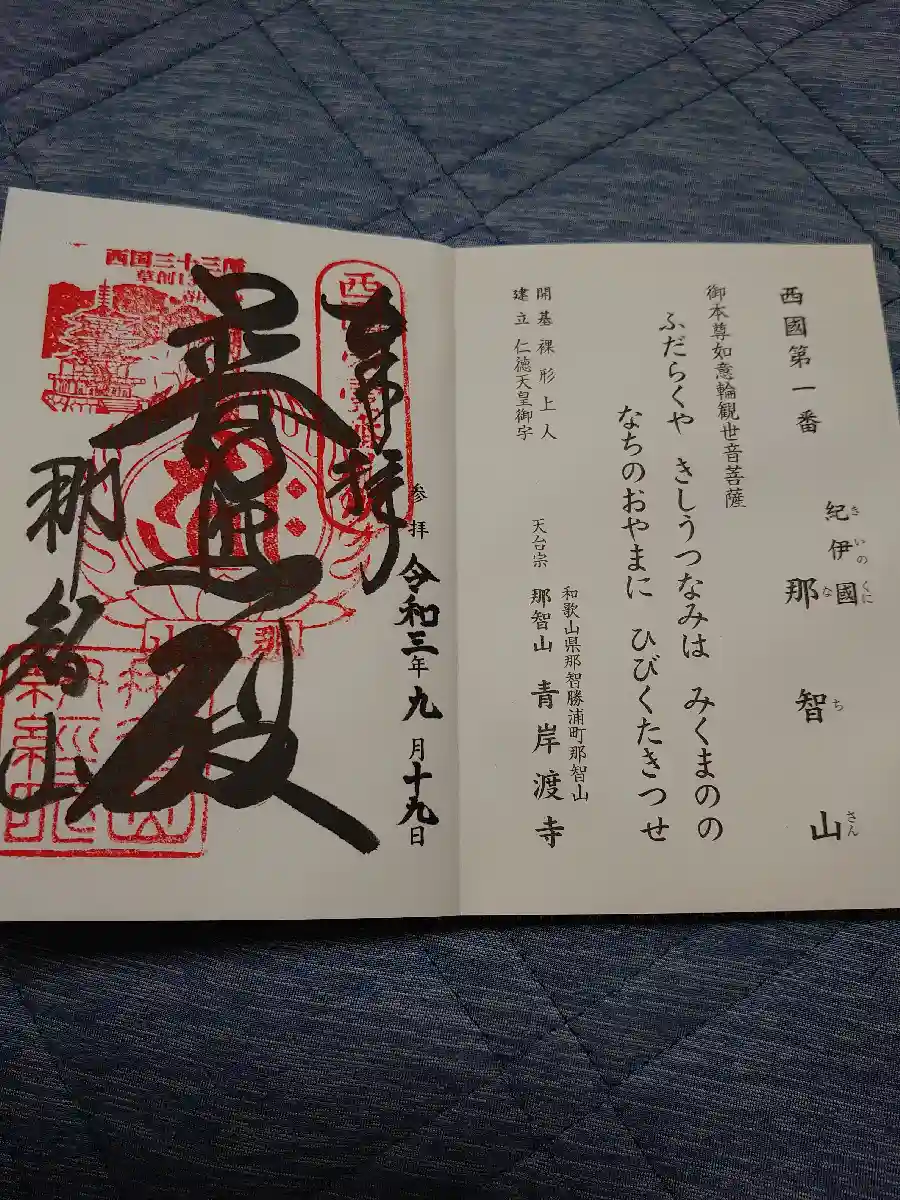 西國第一番
紀伊國
きいのくに
那智山
なちさん
御本尊如意輪観世音菩薩
ふだらくや きしうつなみは みくまのの
なちのおやまに ひびくたきつせ
開基 裸形上人
建立 仁徳天皇御宇
和歌山県那智勝浦町那智山
天台宗 那智山 青岸渡寺
奉拝
参拝 令和三年九月十九日
普照殿
那智山
西国三十三